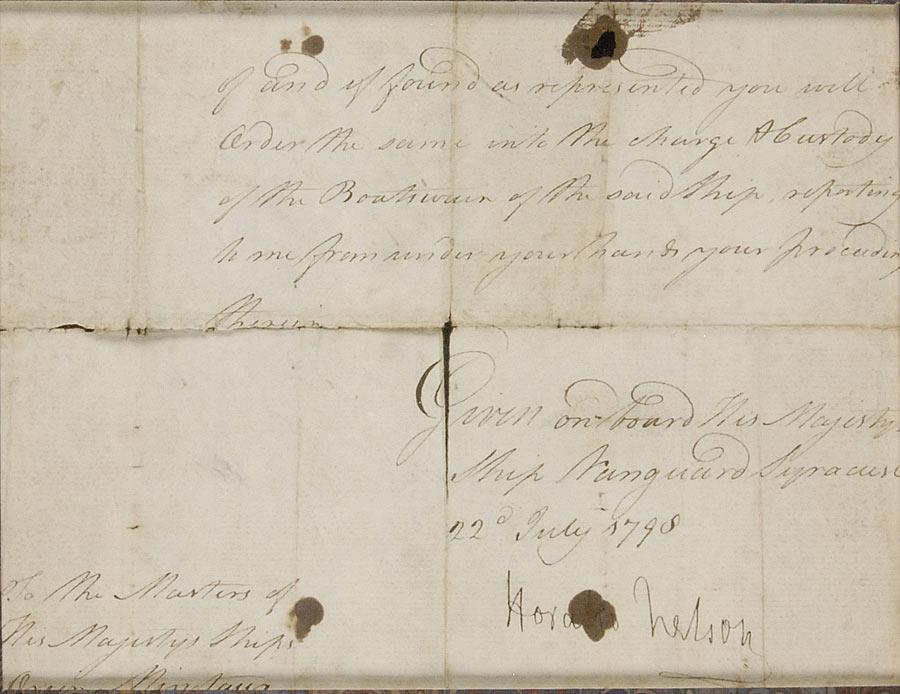 of and if found as represented you will
Order the same into the charge & Custody
of the Boatswain of the said Ship, reporting
to me from under your hands your proceeding
therein
Given on board His Majestys
Ship Vanguard Syracuse
22d July 1798
Horatio Nelson
To the Masters of
His Majestys Ships
Orion Minotaur